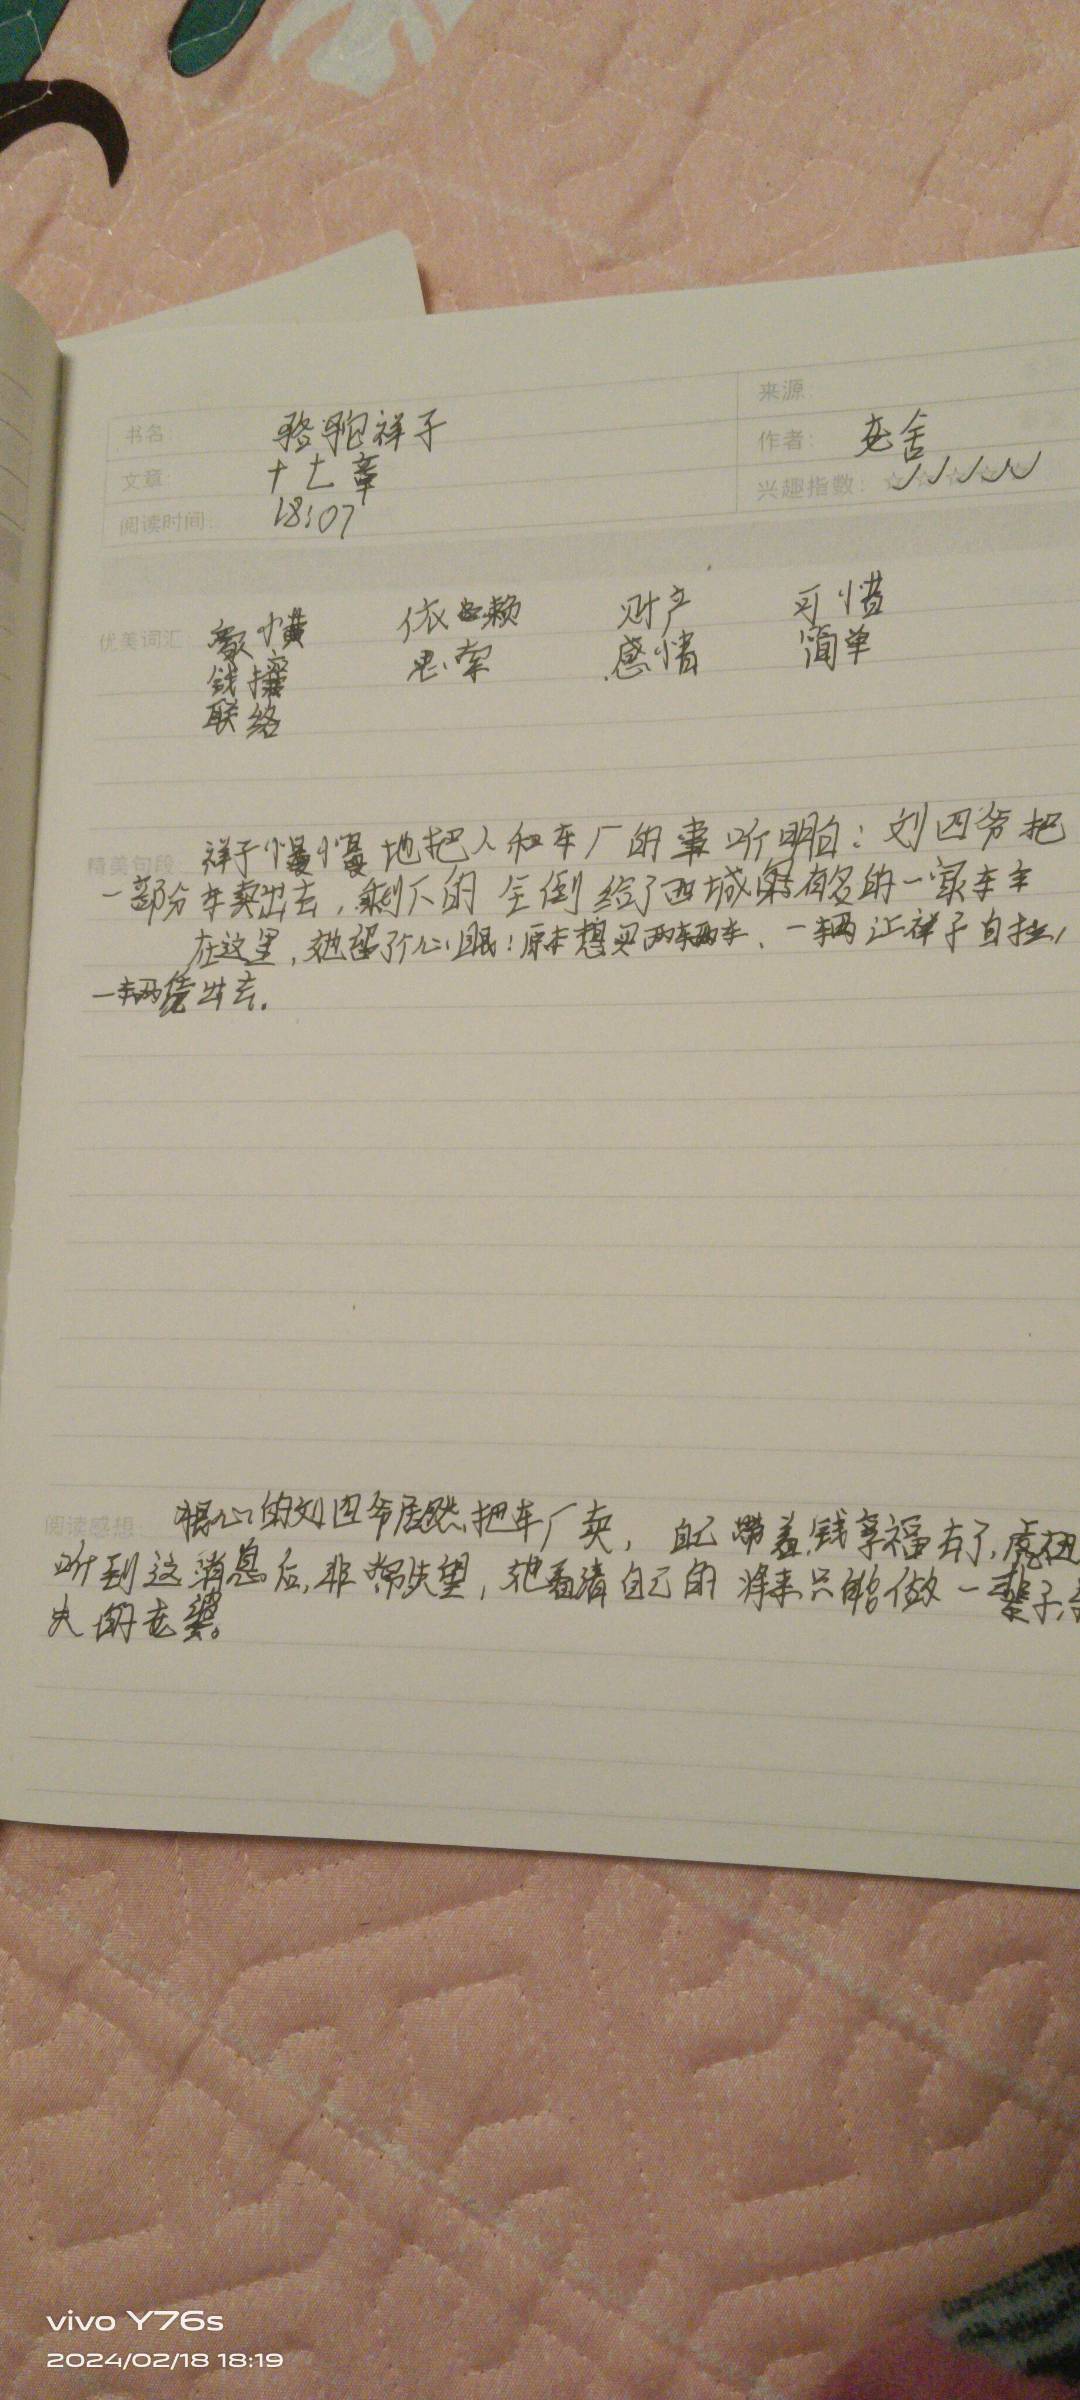 来源:
书名 骆驼祥子
作者: 老舍
文章: 十七章
兴趣指数: ☆☆☆☆☆
阅读时间: 18:07
优美词汇 依赖 财产 可惜
思索 感情 简单
联络
精美句段 祥子慢慢地把人和车厂的事听明白:刘四爷把
一部分车卖出去,剩下的全倒给了西城有名的一家车主
在这里,她留了个心眼:原本想买两辆车、一辆让祥子自拉,
一辆赁出去.
阅读感想: 狠心的刘四爷居然把车厂卖,自己带着钱享福去了,虎妞
听到这消息后,非常失望,她看清自己的将来只能做一辈子
夫的老婆。
vivo Y76s
2024/02/18 18:19